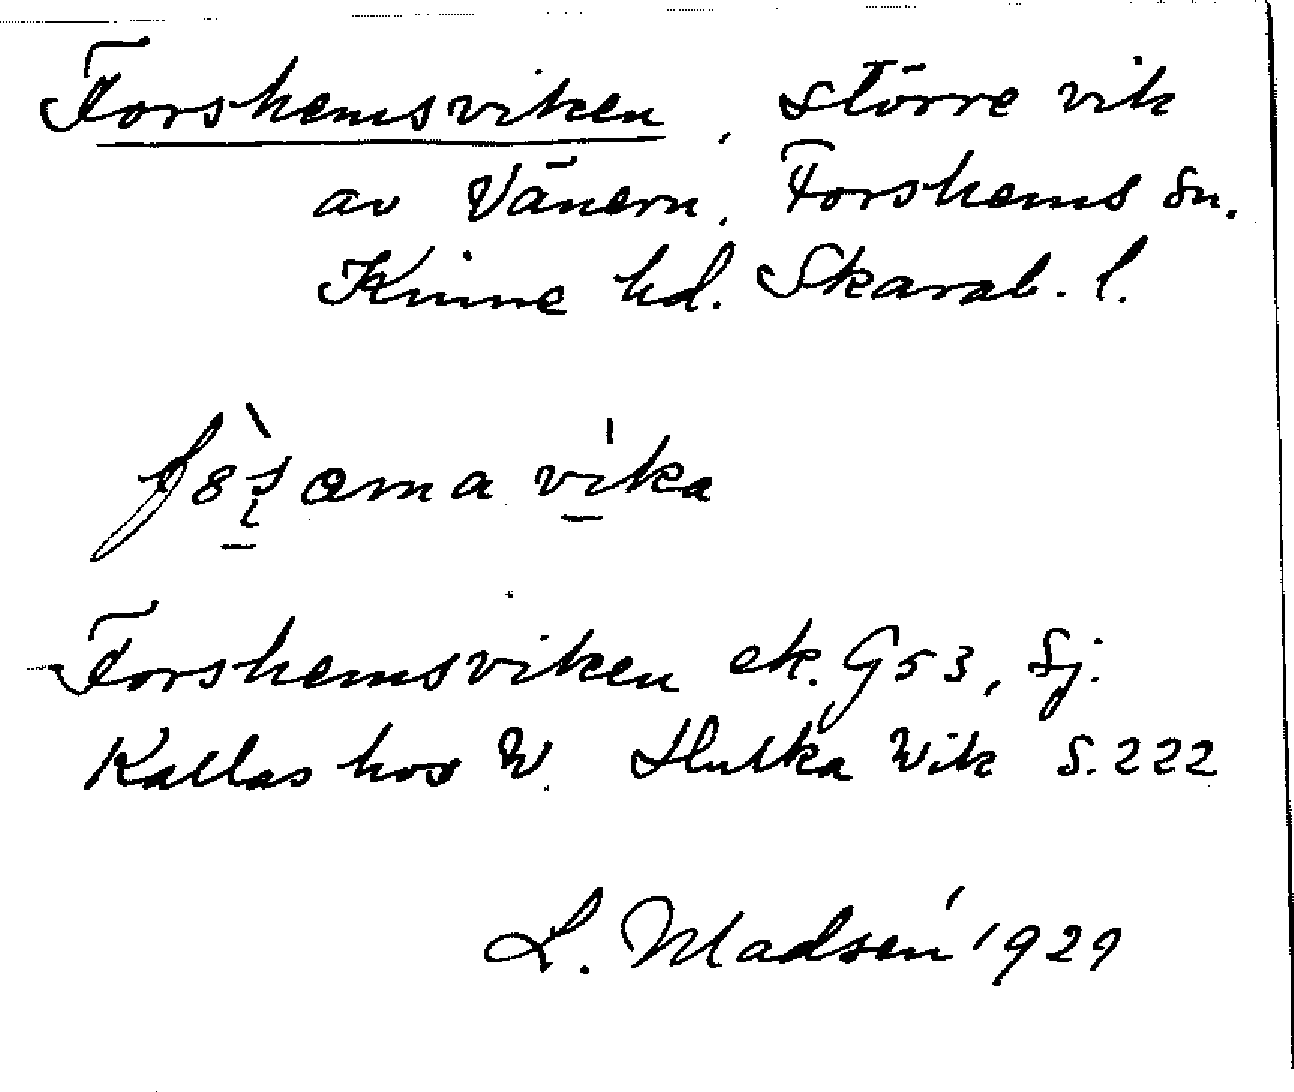 Forshemsviken, större vik
av Vänern. Forshems sn.
Kinne hd. Skarab. l.
Forshemsviken ek. G53, Sj.
Kallas hos W. Hulka Wik S. 222
L. Madsén 1929